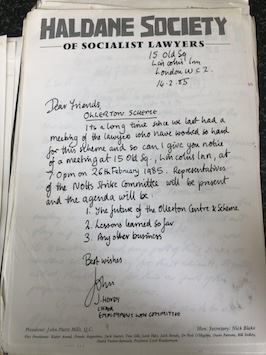 HALDANE SOCIETY
OF SOCIALIST LAWYERS
15 Old Sq
Lincolns Inn
London W C 2.
14-2-85
Dear Friends,
OLLERTON SCHEME
Its a long time since we last had a
meeting of the lawyers who have worked so hard
for this scheme and so can I give you notice
of a meeting at 15 Old Sq., Lincolns Inn, at
7.0pm on 26th February 1985. Representatives
of the Notts Strike Committee will be present
and the agenda will be
1. The future of the Ollerton Centre & Scheme
2. Lessons learned so far
3. Any other business
Best wishes
John
J. HENDY
CHAIR
EMPLOYMENT LAW COMMITTEE
President: John Platts Mills, Q.C.
Hon. Secretary: Nick Blake